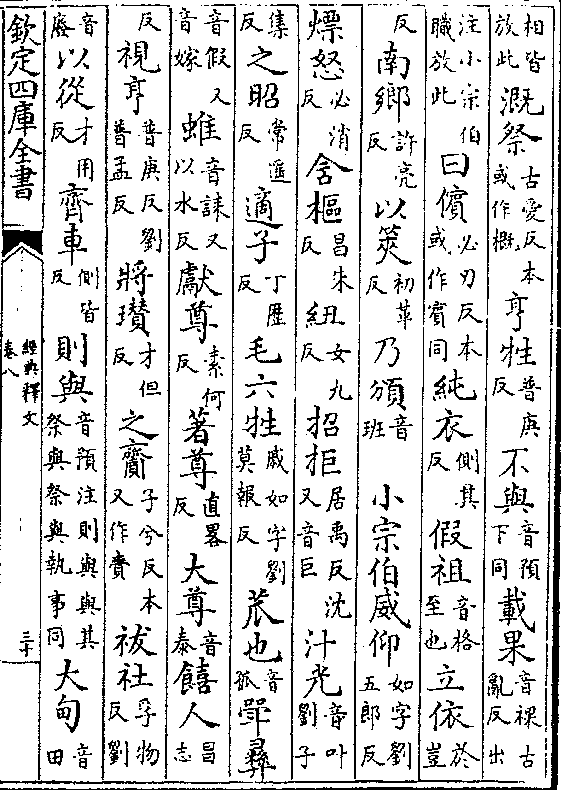 相皆放此溉祭古愛反本或作概亨牲普庚反不與音預下同載果音祼古亂反出
注小宗伯職放此曰儐必刃反本或作賓同純衣側其反假祖音格至也立依於豈
反南鄉許亮反以筴初革反乃頒音班 小宗伯威仰如字劉五郎反
熛怒必消反含樞昌朱反紐女九反招拒居禹反沈又音巨汁光音叶劉子
集反之昭常遥反適子丁歷反毛六牲戚如字劉莫報反苽也音孤斝彝
音假又音嫁蜼音誄又以水反獻尊素何反著尊直畧反大尊音泰饎人昌志
反視亨普庚反劉普孟反將瓚才但反之齎子兮反本又作賫祓社孚物反劉
音廢以從才用反齊車側皆反則與音預注則與與其祭與祭與執事同大甸音田
欽定四庫全書
經典釋文
卷八
三十